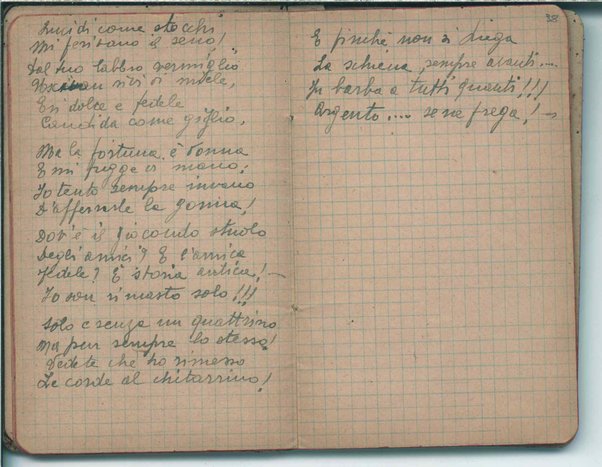 Lucidi come stocchi
Mi ferivano il seno!
Dal tuo labbro vermiglio
stille di miele,
Eri dolce e fedele
Candida come giglio.
Ma la fortuna è donna
E mi fugge di mano;
Io tento sempre invano
D'afferrarle la gonna!
Dov'è il giocondo stuolo
Degli amici? E l'amica
Fedele? È storia antica! —
Io son rimasto solo!!!
Solo e senza un quattrino
Ma pur sempre lo stesso!
Vedete che ho rimesso
Le corde al chitarrino!
38
E finché non si piega
La schiena, sempre avanti....
In barba a tutti quanti!!!
Argento.... se ne frega! —